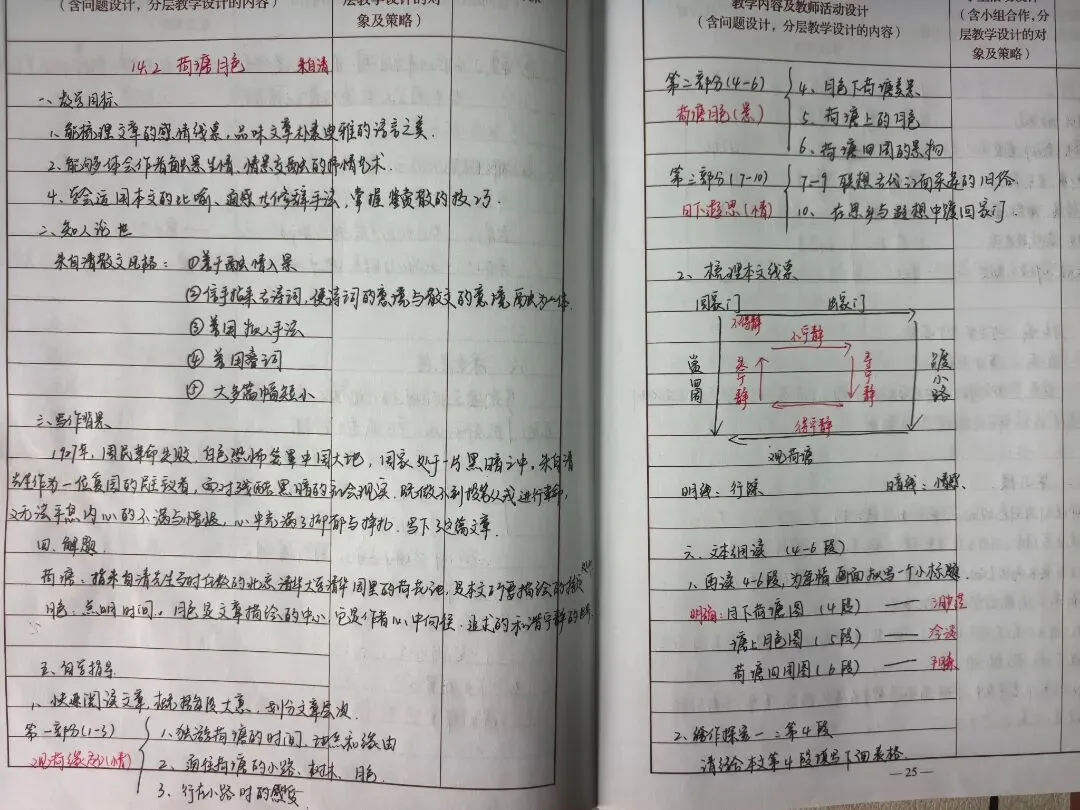 (含问题设计，分层教学设计的内容)
层教学设计的对
象及策略)
14.2 荷塘月色 朱自清
一、教学目标
1、能梳理文章的感情线索，品味文章朴素典雅的语言之美.
2、能够体会作者融景生情、情景交融的抒情艺术.
4、学会运用本文的比喻、通感等修辞手法，掌握鉴赏散的技巧.
二、知人论世
朱自清散文风格：①善于融情入景
②信手拈来古诗词，使诗词的意境与散文的意境融为一体.
③善用拟人手法
④善用叠词
⑤大多篇幅短小
三、写作背景
1927年，国民革命失败，白色恐怖笼罩中国大地，国家处于一片黑暗之中.朱自清
先生作为一位爱国的民主战者，面对残酷黑暗的社会现实，既做不到投笔从戎进行革命，
又无法平息内心的不满与憎恨，心中充满了抑郁与挣扎，写下了这篇文章.
四、解题
荷塘：指朱自清先生写时在教的北京清华大学清华园里的荷花池，是本文所要描绘的
月色：点明时间。月色是文章描绘的中心，它是作者心中向往、追求的和谐宁静的
五、自学指导
1、快速阅读文章，概括各段大意，划分文章层次.
第一部分(1-3)
观荷缘起(情)
1、独游荷塘的时间、地点和缘由
2、通往荷塘的小路、树木、月色
3、行在小路时的感受
教学内容及教师活动设计
(含问题设计，分层教学设计的内容)
(含小组合作,分
层教学设计的对
象及策略)
第二部分(4-6)
荷塘月色(景)
4、月色下荷塘美景
5、荷塘上的月色
6、荷塘四周的景物
第三部分(7-10)
月下遐思(情)
7-9 联想古代江南采莲的旧俗
10、在思乡与遐想中踱回家门.
2、梳理本文线索
回家门 出家门
不得静
不宁静
寻宁静
得宁静
踱小路
观荷塘
明线：行踪 暗线：情感.
六、文本细读 (4-6段)
1、再读4-6段，为每幅画面拟写一个小标题.
明确：月下荷塘图 (4段) ——
塘上月色图 (5段) ——
荷塘四周图 (6段) ——
2、合作探究一：第4段
请结合本文第4段填写下面表格.
— 25 —